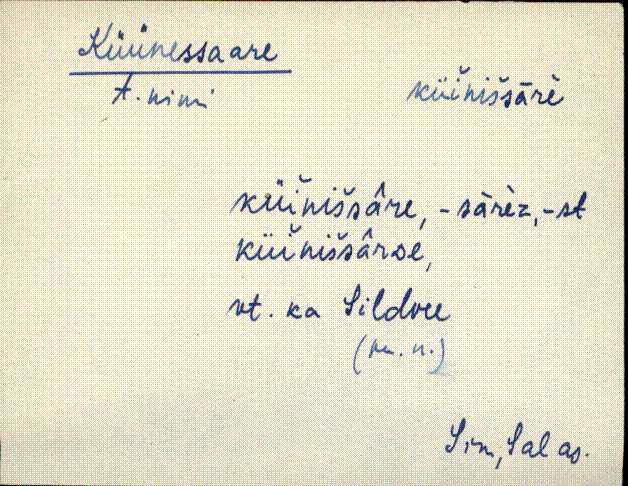 Küünessaare
t. nimi
küi̬nišsārè
küi̬nišsâre, -sārèz, -st
küi̬nišsârse,
vt. ka Sildvee
(m. n.)
Sim, Salas.